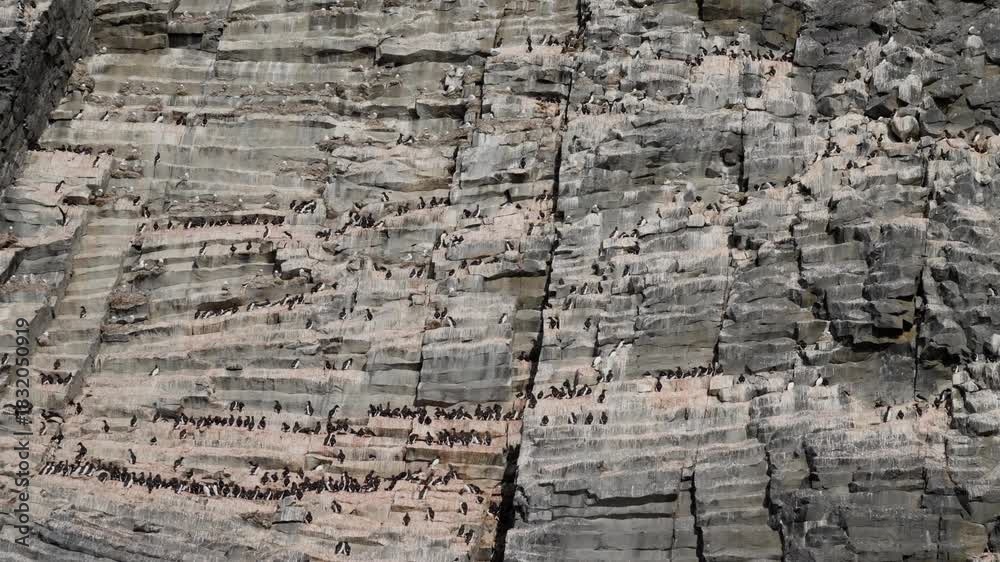 Adobe Stock | #1832050919